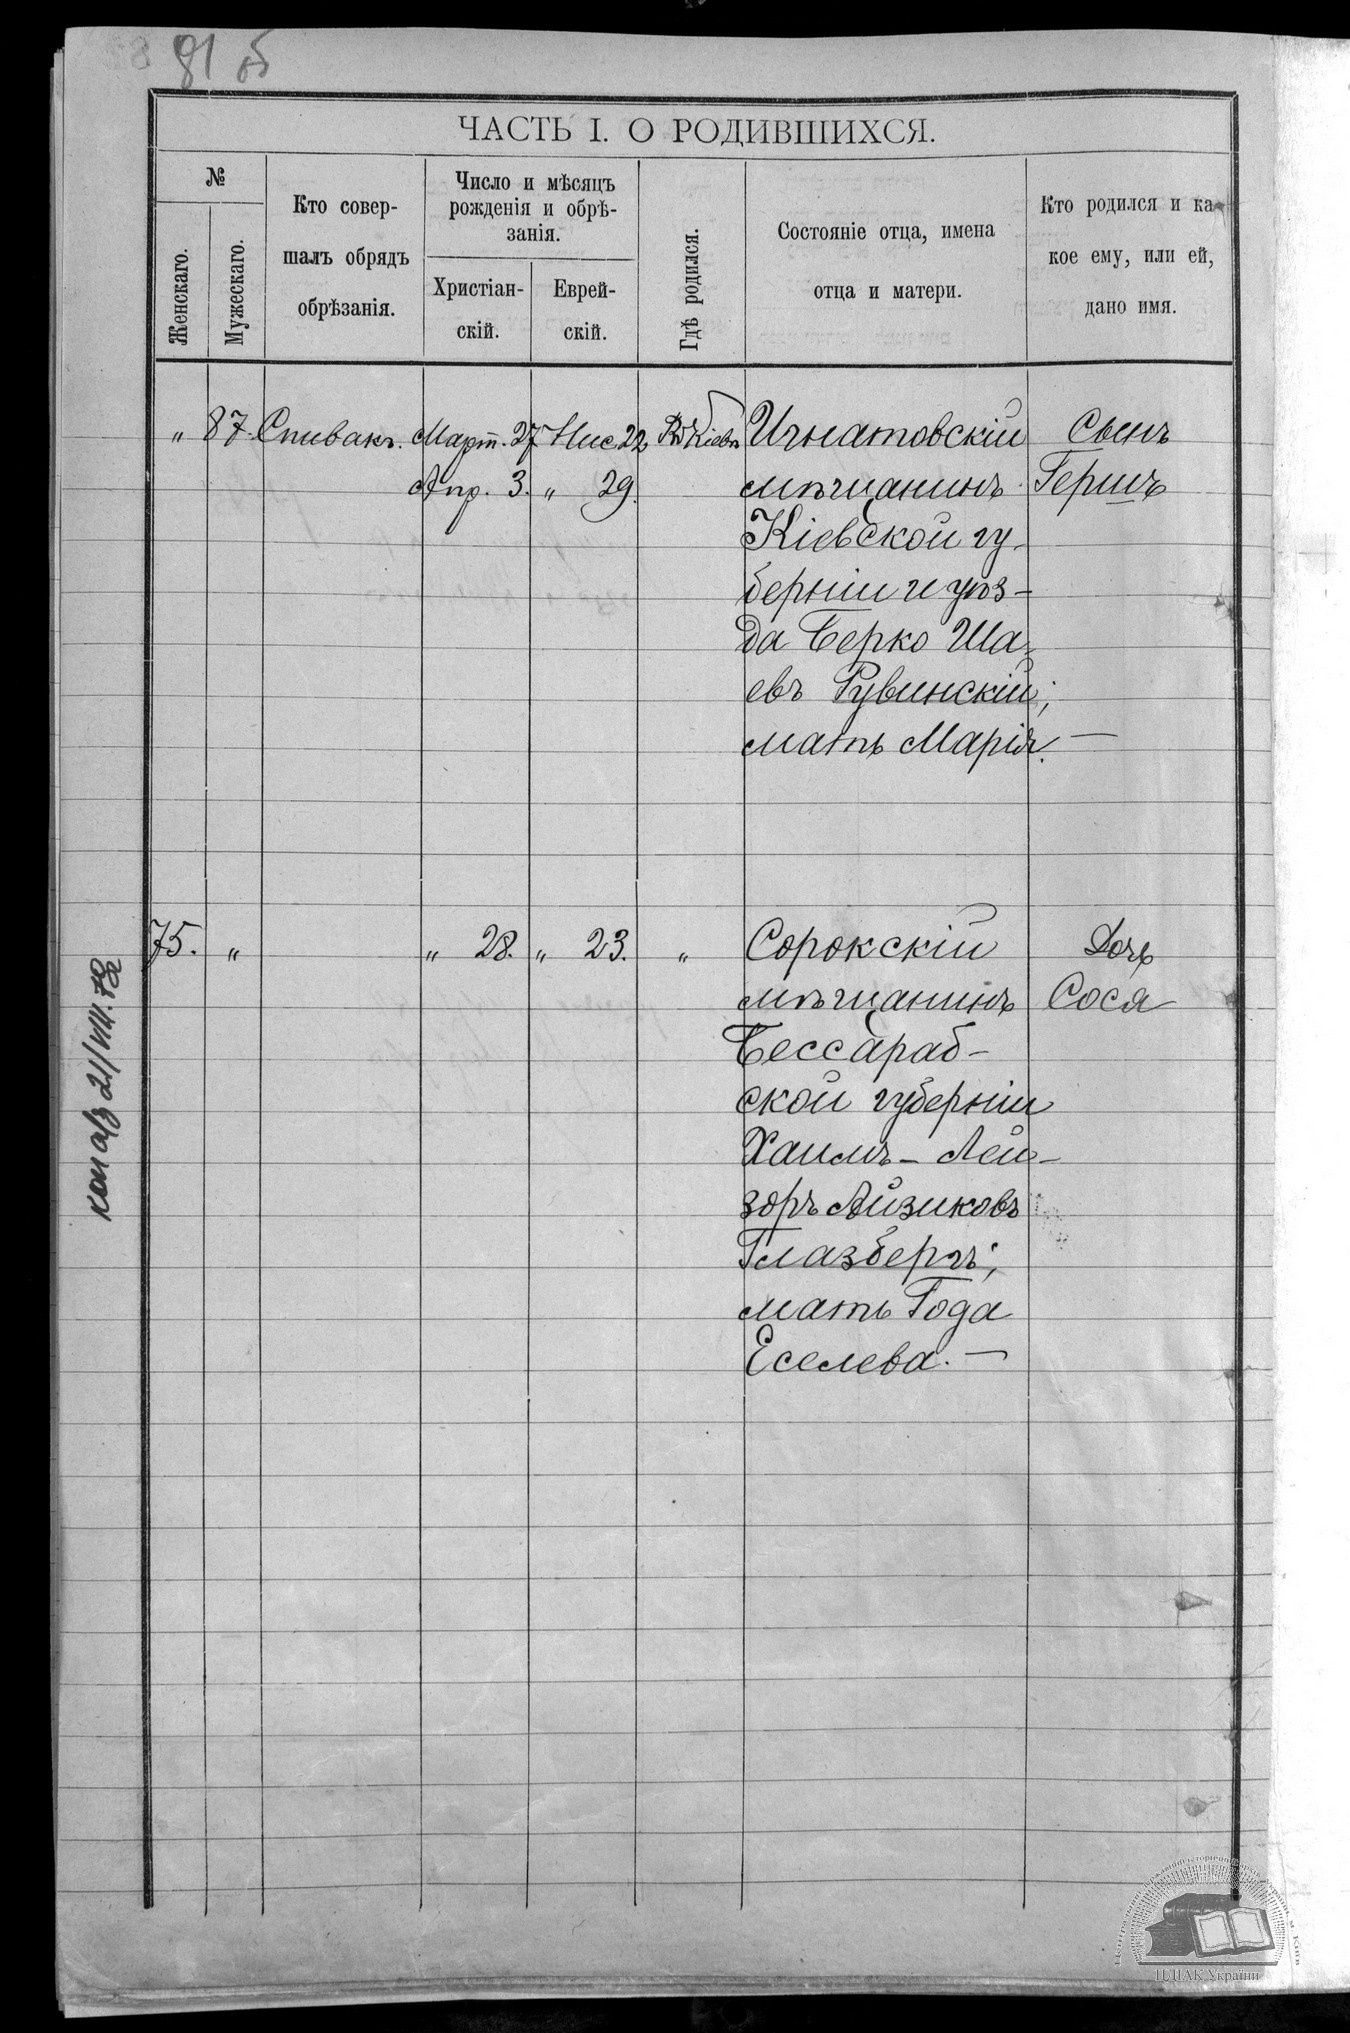 81 об
ЧАСТЬ I. О РОДИВШИХСЯ.
№
Женскаго.
Мужескаго.
Кто совер-
шалъ обрядъ
обрѣзанія.
Число и мѣсяцъ
рожденія и обрѣ-
занія.
Христіан-
скій.
Еврей-
скій.
Гдѣ родился.
Состояніе отца, имена
отца и матери.
Кто родился и ка-
кое ему, или ей,
дано имя.
„ 87. Спивакъ. Март. 27 Нис 22 Въ Кіевѣ Игнатовскій Сынъ
Апр. 3. „ 29. мѣщанинъ Гершъ
Кіевской гу-
берніи и уѣз-
да Берко Ша-
евъ Рувинскій;
мать Марія. —
75. „ „ 28. „ 23. „ Сорокскій Дочь
мѣщанинъ Сося
Бессараб-
ской губерніи
Хаимъ - Лей-
зоръ Айзиковъ
Глазбергъ;
мать Года
Еселева. —
21/VIII.72
ЦДІАК України